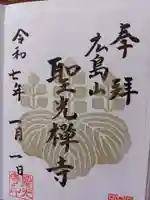 奉拝
広島山
聖光禅寺
令和七年 一月一日